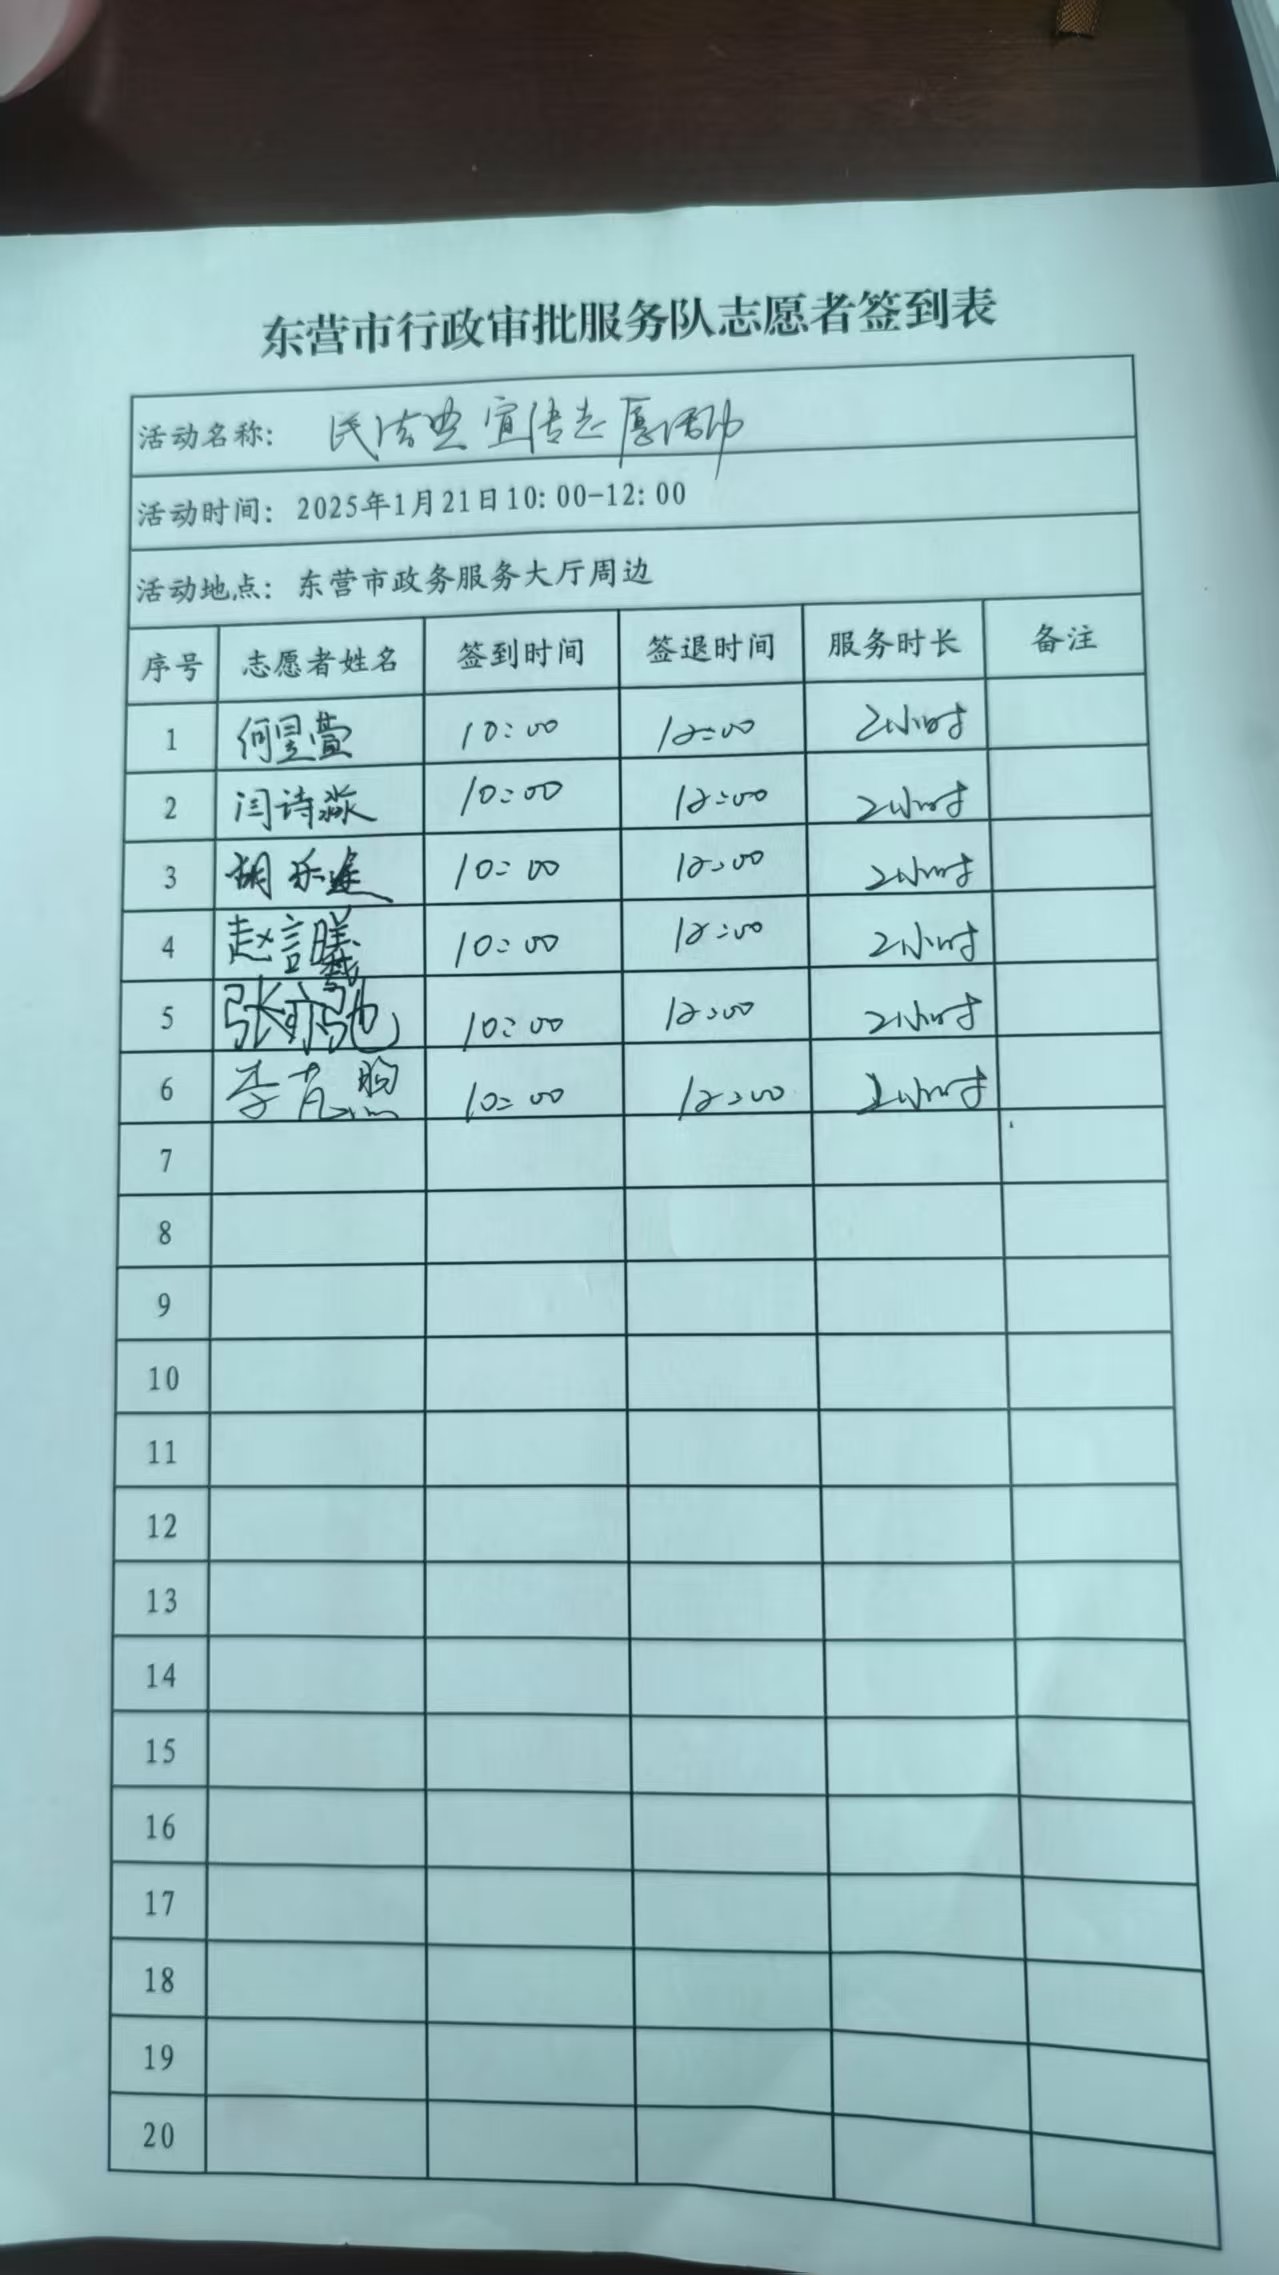 东营市行政审批服务队志愿者签到表
活动名称: 民法典宣传志愿活动
活动时间: 2025年1月21日10:00-12:00
活动地点: 东营市政务服务大厅周边
序号 志愿者姓名 签到时间 签退时间 服务时长 备注
1 何昱萱 10:00 12:00 2小时
2 闫诗淼 10:00 12:00 2小时
3 胡乐 10:00 12:00 2小时
4 赵言曦 10:00 12:00 2小时
5 张亦弛 10:00 12:00 2小时
6 李 10:00 12:00 2小时
7
8
9
10
11
12
13
14
15
16
17
18
19
20